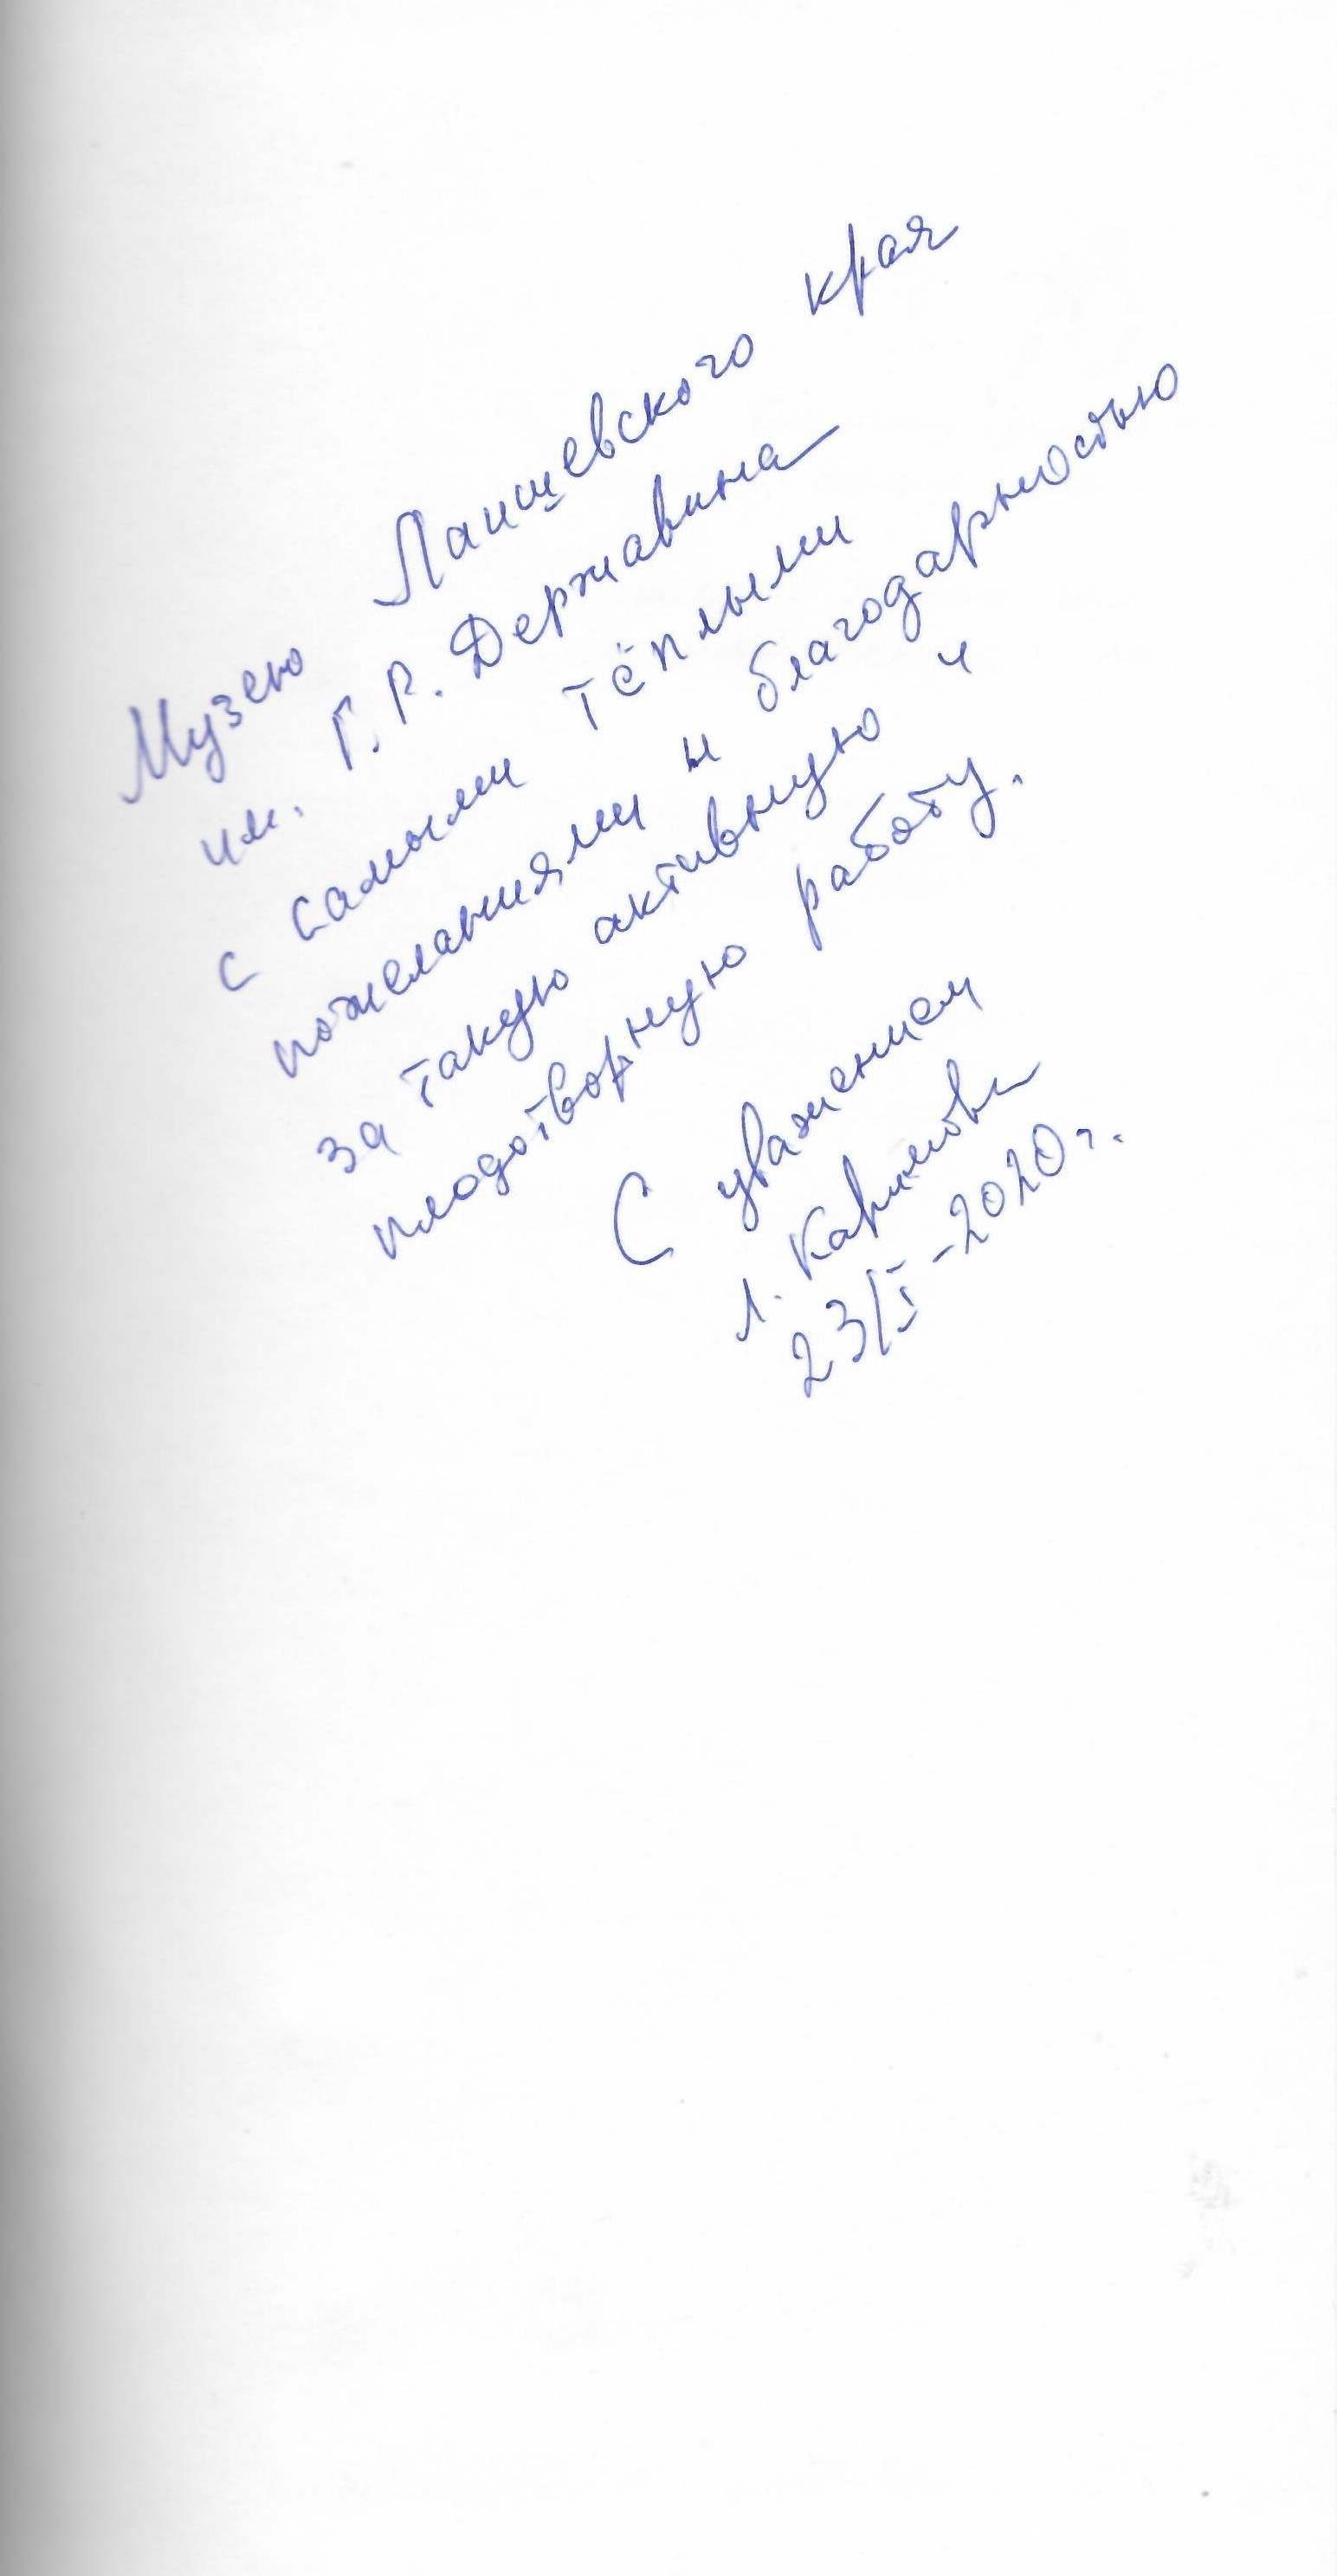 Музею Лаишевского края
им. Г.Р. Державина
с самыми тёплыми
пожеланиями и благодарностью
за такую активную и
плодотворную работу.
С уважением
Л. Каримова
23/I-2020г.